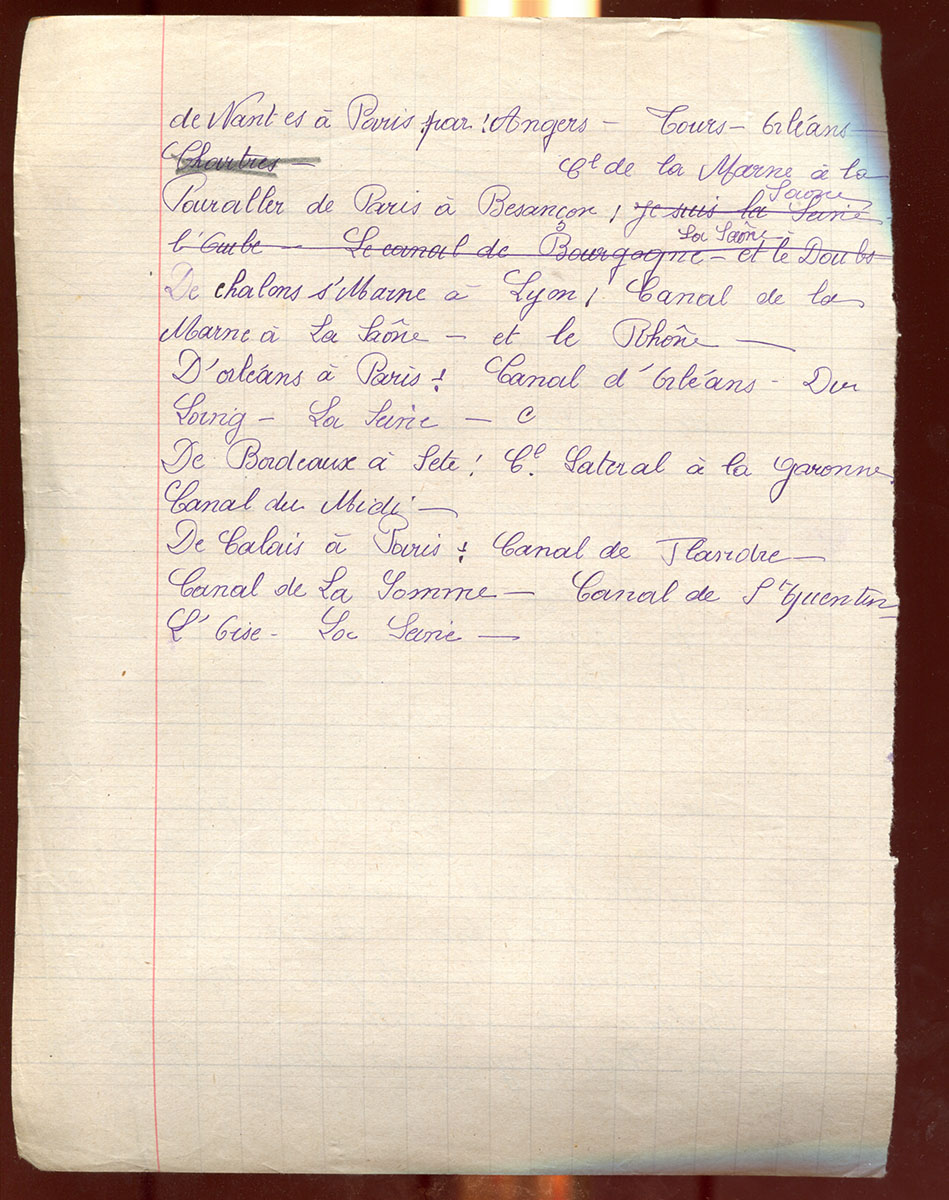 de Nantes à Paris par : Angers – Tours – Orléans –
Chartres –
Cl de la Marne à la
Saône
Pour aller de Paris à Besançon : je suis la Seine
La Saône
l'Aube – Le canal de Bourgogne – et le Doubs –
De chalons s/Marne à Lyon : Canal de la
Marne à La Saône – et le Rhône –
D'orléans à Paris : Canal d'Orléans - Du
Loing – La Seine – C
De Bordeaux à Sete : Cl Lateral à la garonne
Canal du Midi –
De Calais à Paris : Canal de Flandre –
Canal de La Somme – Canal de St Quentin
L'Oise - La Seine –